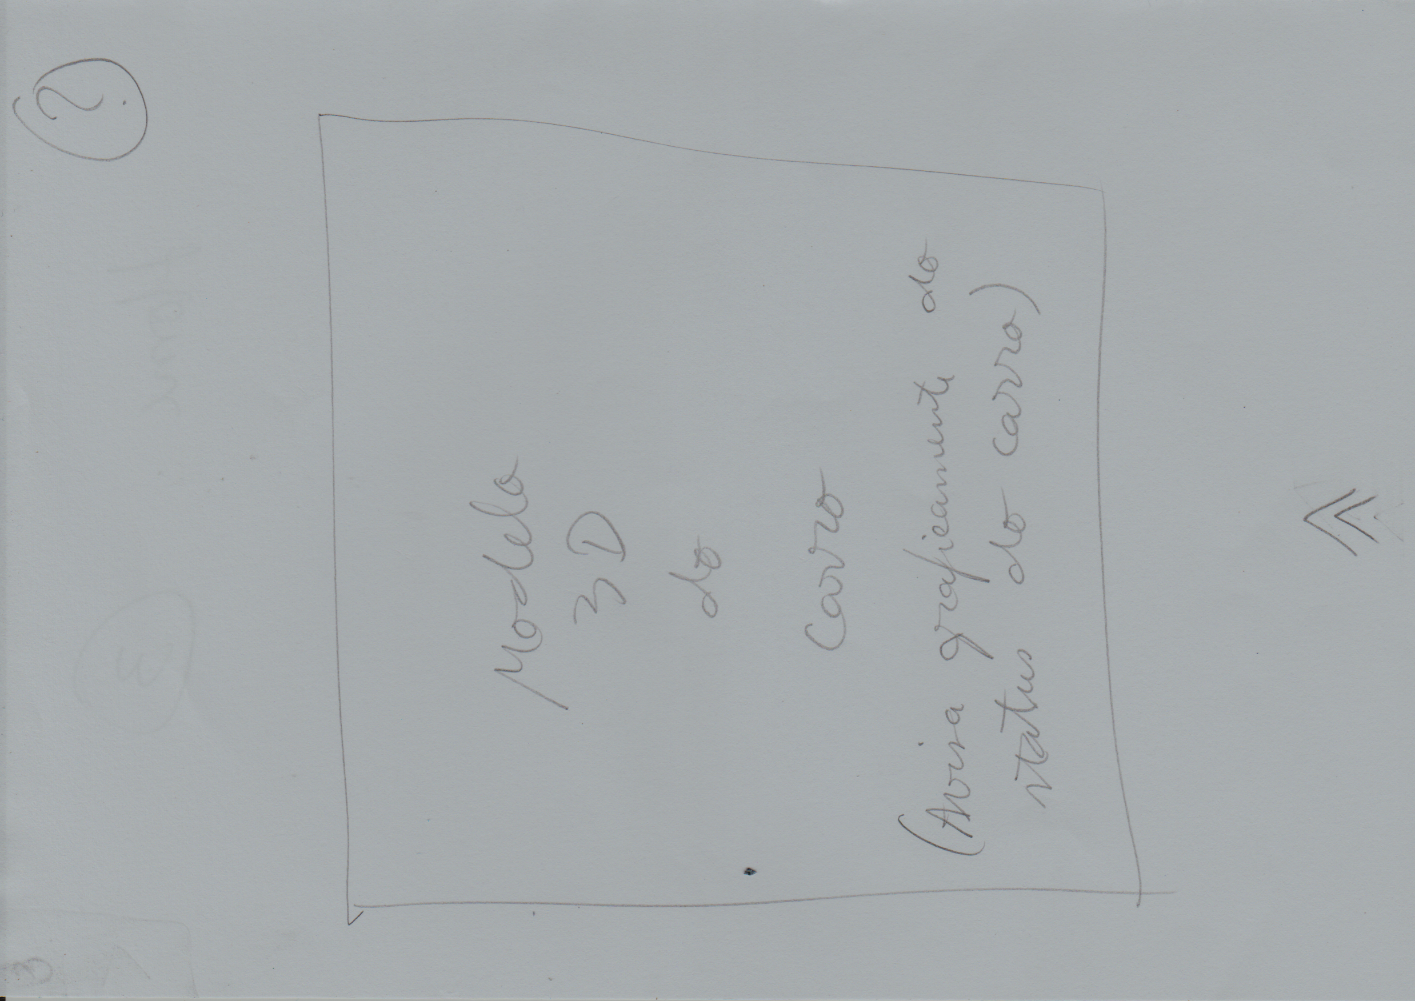 ?
Modelo
3D
do
carro
(Avisa graficamente do
status do carro)